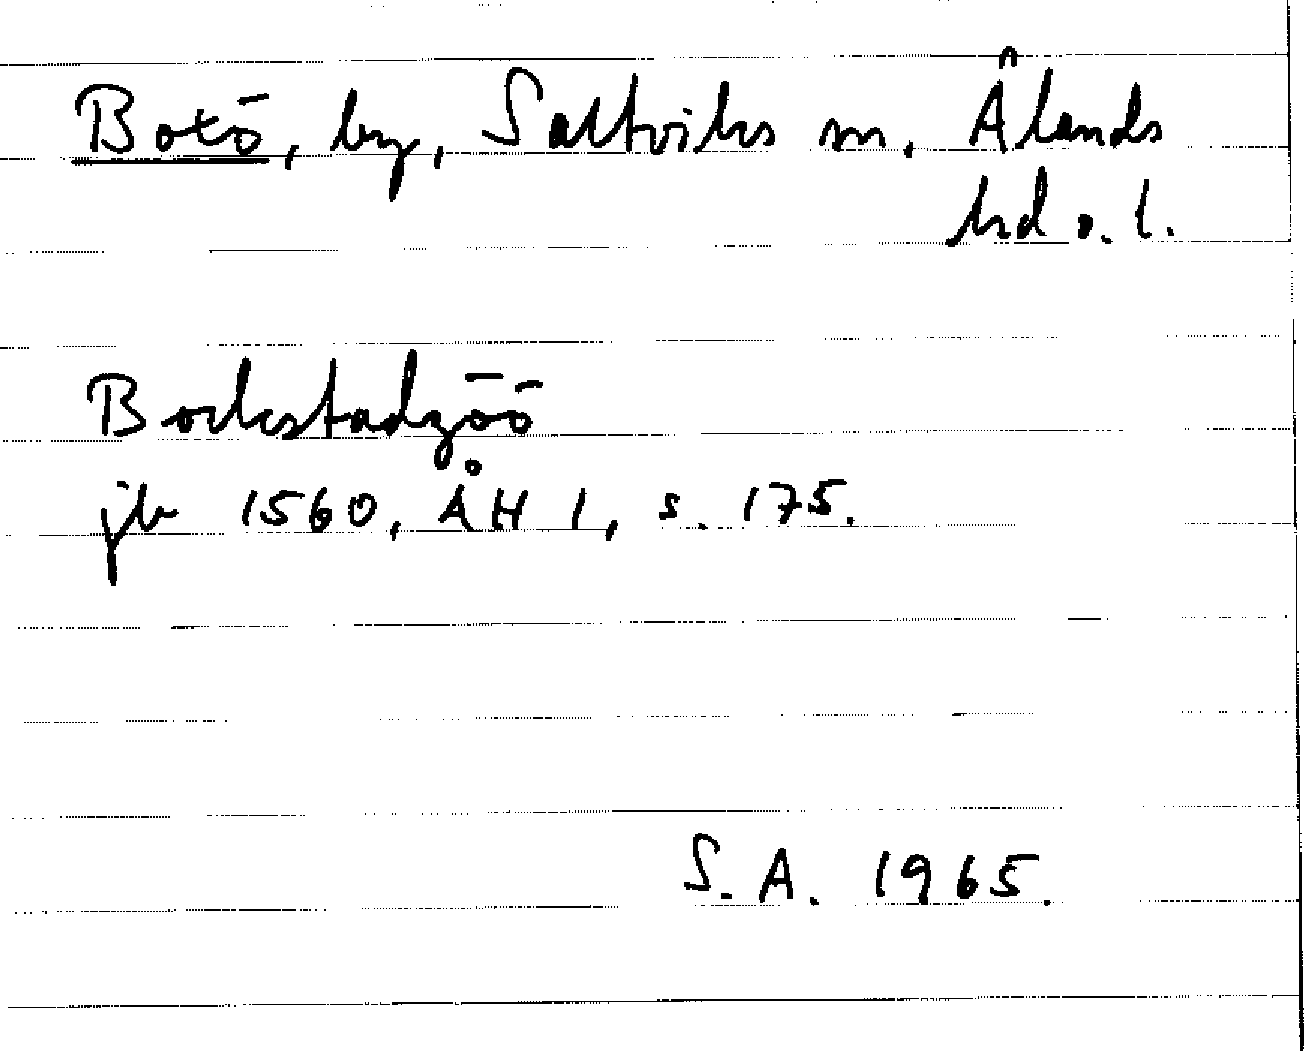 Botö, by, Saltviks sn, Ålands
hd o. l.
Bockstadzöö
jb 1560, ÅH 1, s. 175.
S.A. 1965.